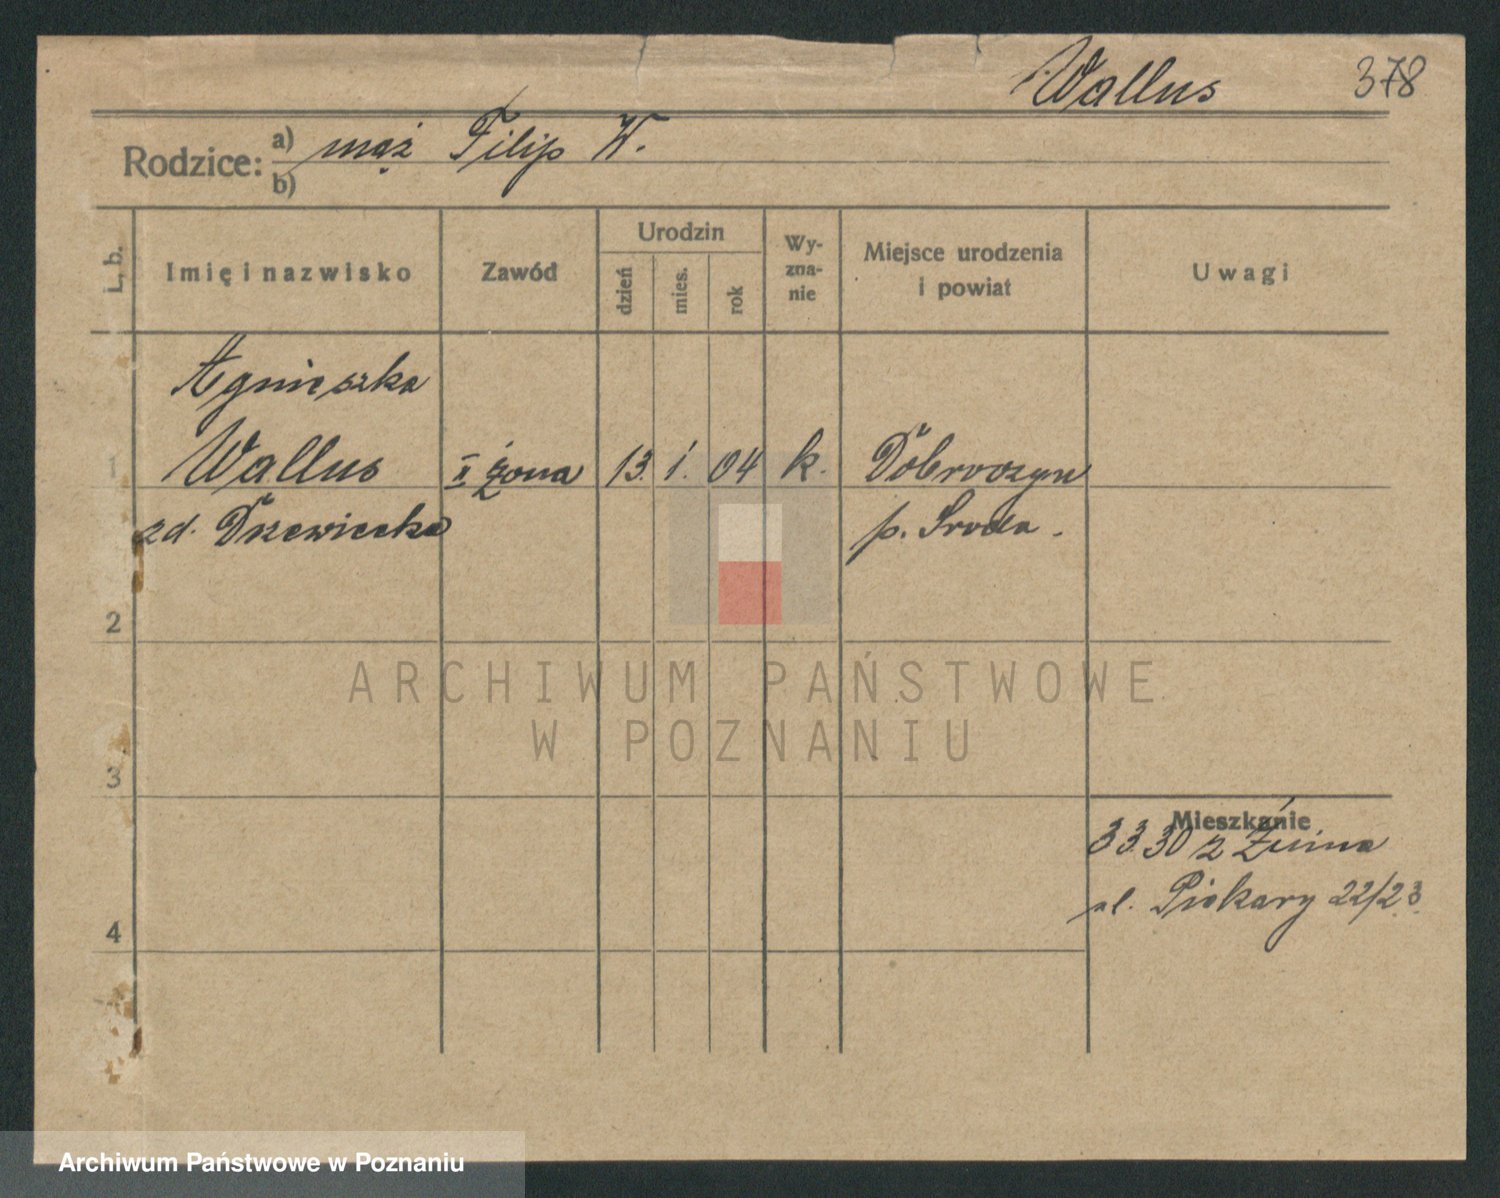 Wallus 378
Rodzice: a) mąż Filip W.
b)
L. b.
Imię i nazwisko
Zawód
Urodzin
dzień
mies.
rok
Wy-
zna-
nie
Miejsce urodzenia
i powiat
Uwagi
Agnieszka
1 Wallus II żona 13. 1. 04 k. Dobroczyn
zd. Drzewiecka p. Sroda.
2
ARCHIWUM PAŃSTWOWE
W POZNANIU
3
Mieszkanie
3 3.30 z Żnina
ul. Piekary 22/23
4
Archiwum Państwowe w Poznaniu